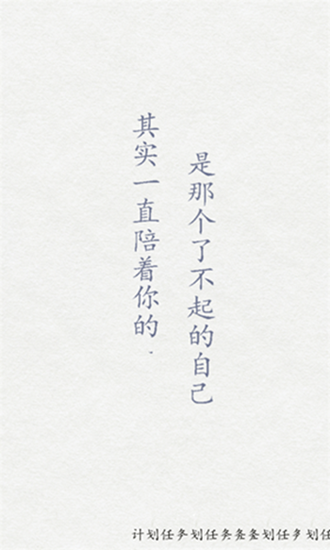 其实一直陪着你的.
是那个了不起的自己
计划任务划任务务务划任务划任